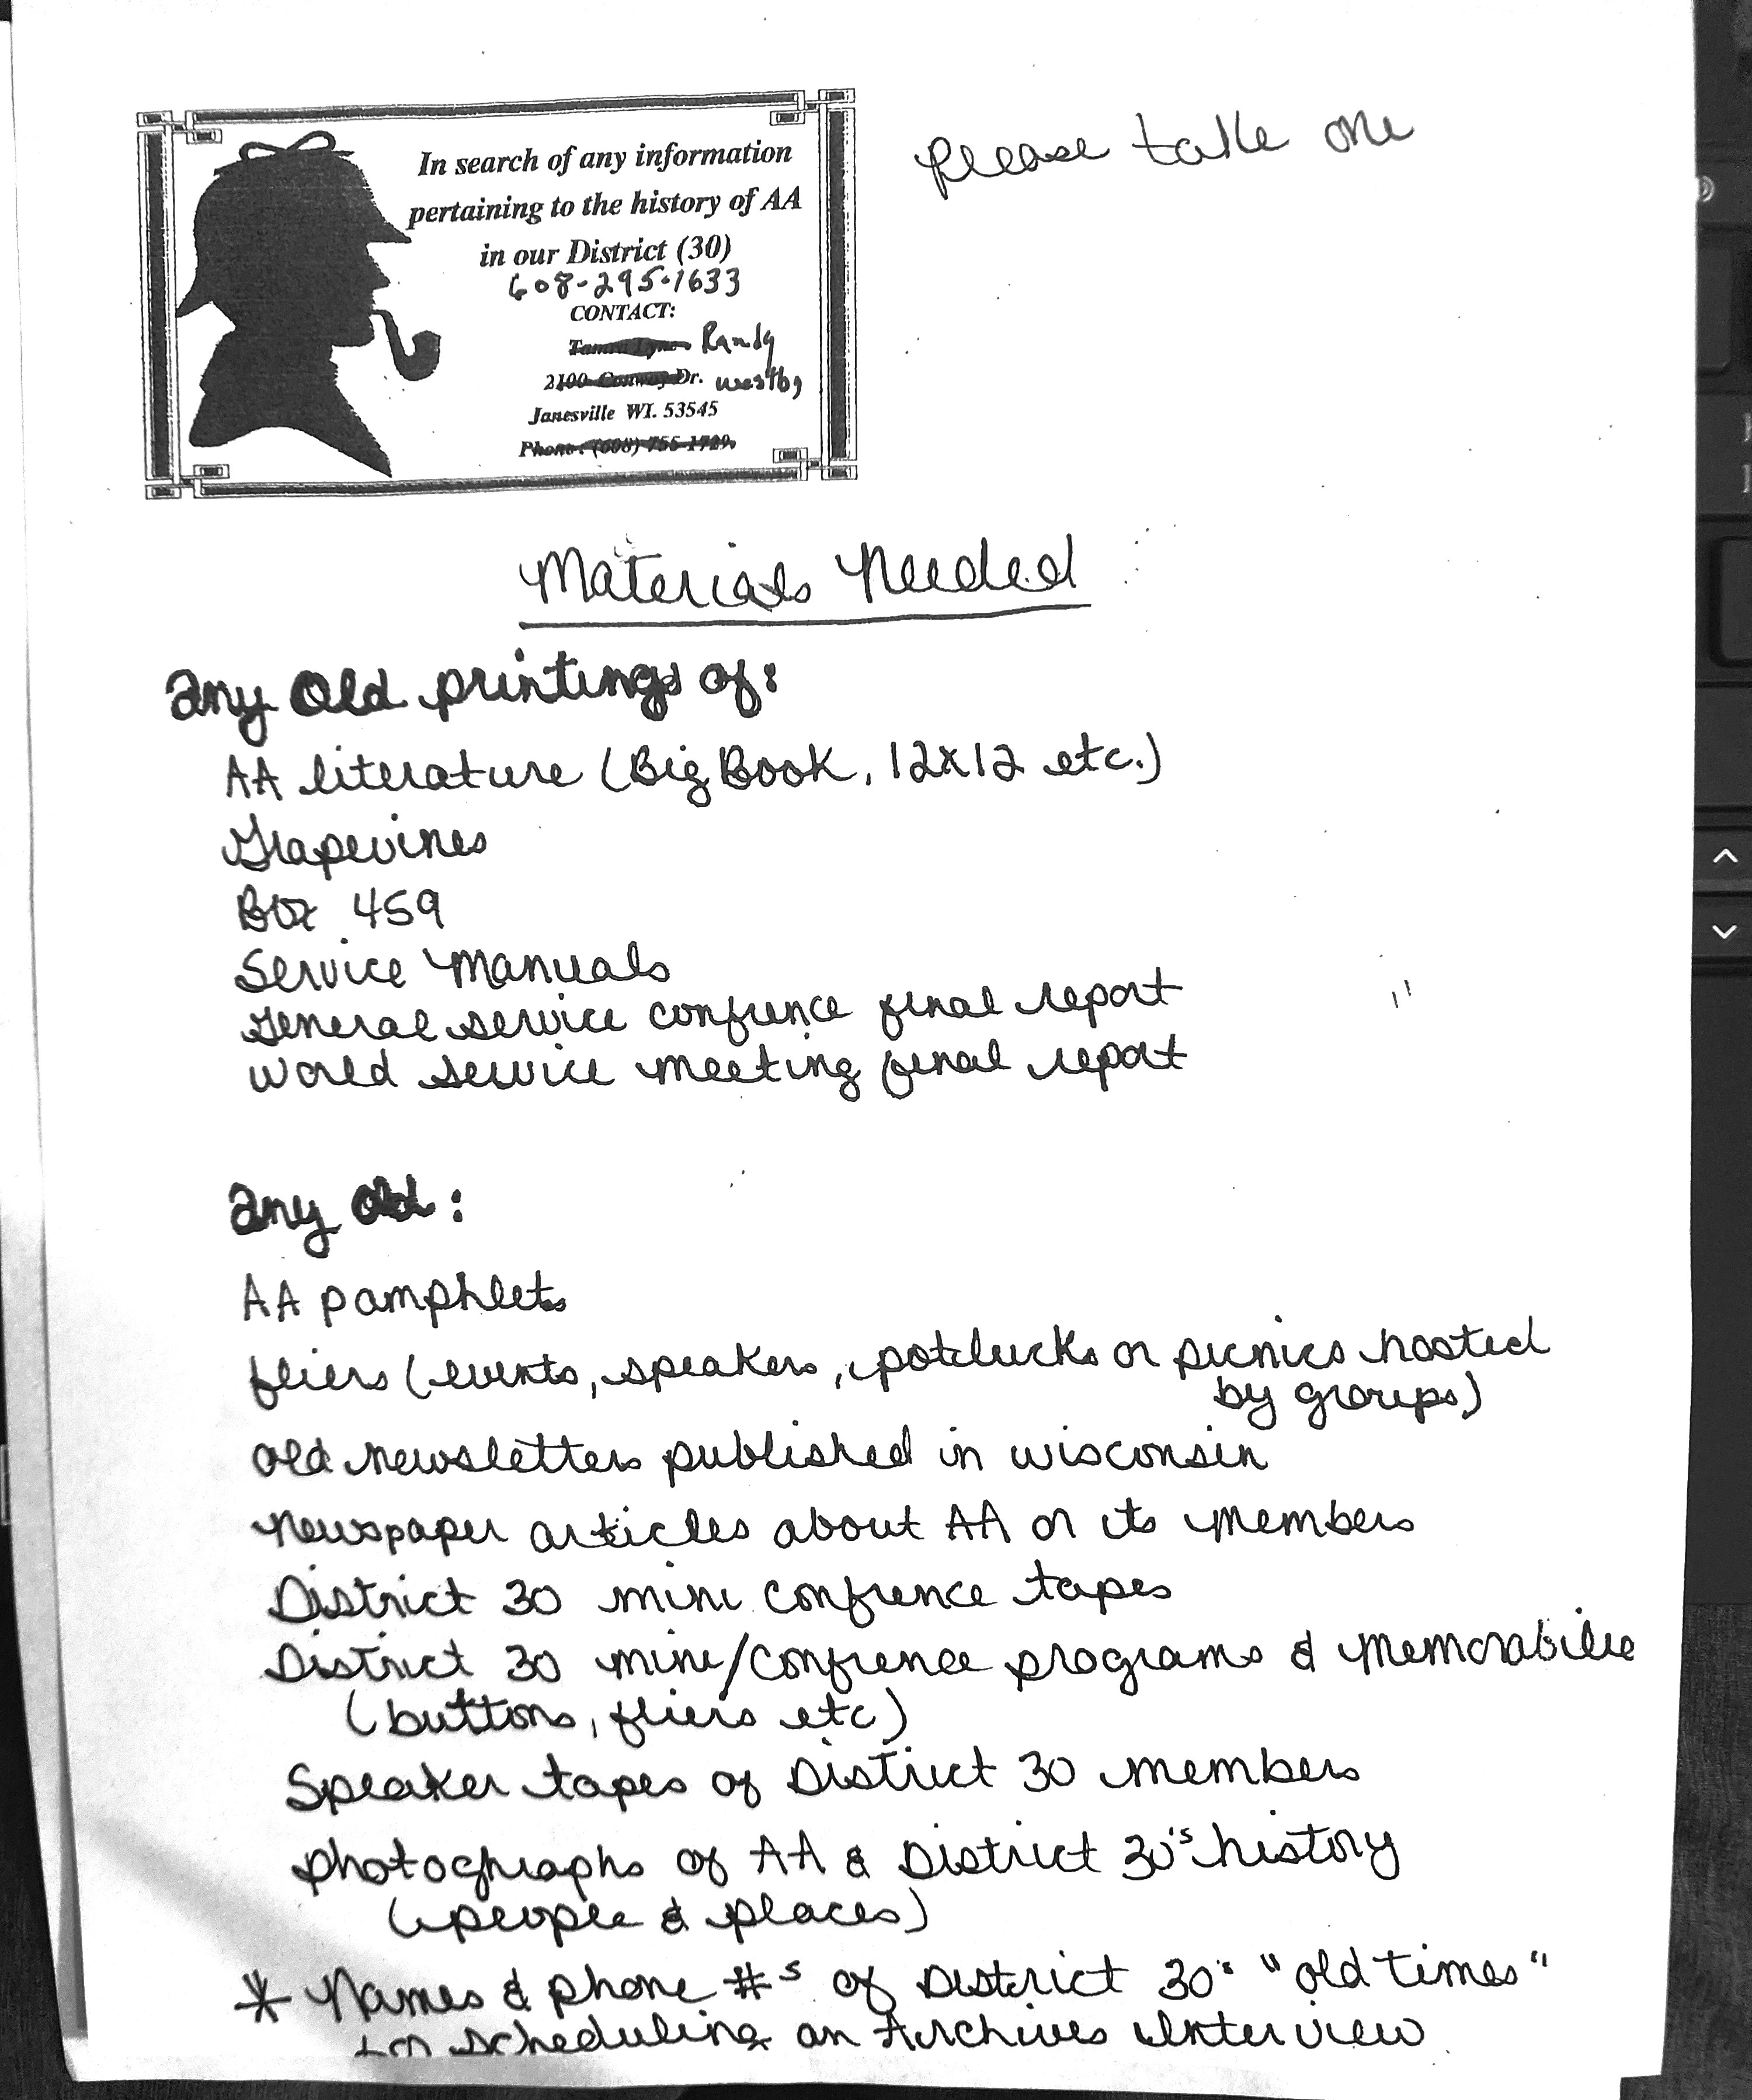 In search of any information
pertaining to the history of AA
in our District (30)
608-295-1633
CONTACT:
Randy
2100 Conway Dr. Westby
Janesville WI. 53545
Phone: (608) 755-1729
please take one
Materials Needed
any old printings of:
AA literature (Big Book, 12x12 etc.)
Grapevines
Box 459
Service Manuals
General service confrence final report
World service meeting final report
any old:
AA pamphlets
fliers (events, speakers, potlucks or picnics hosted
by groups)
old newsletters published in wisconsin
newspaper articles about AA or its members
District 30 mini confrence tapes
District 30 mini/confrence programs & memorabilia
(buttons, fliers etc)
Speaker tapes of District 30 members
photographs of AA & District 30's history
(people & places)
* Names & phone #s of District 30's "old times"
for scheduling an Archives Interview